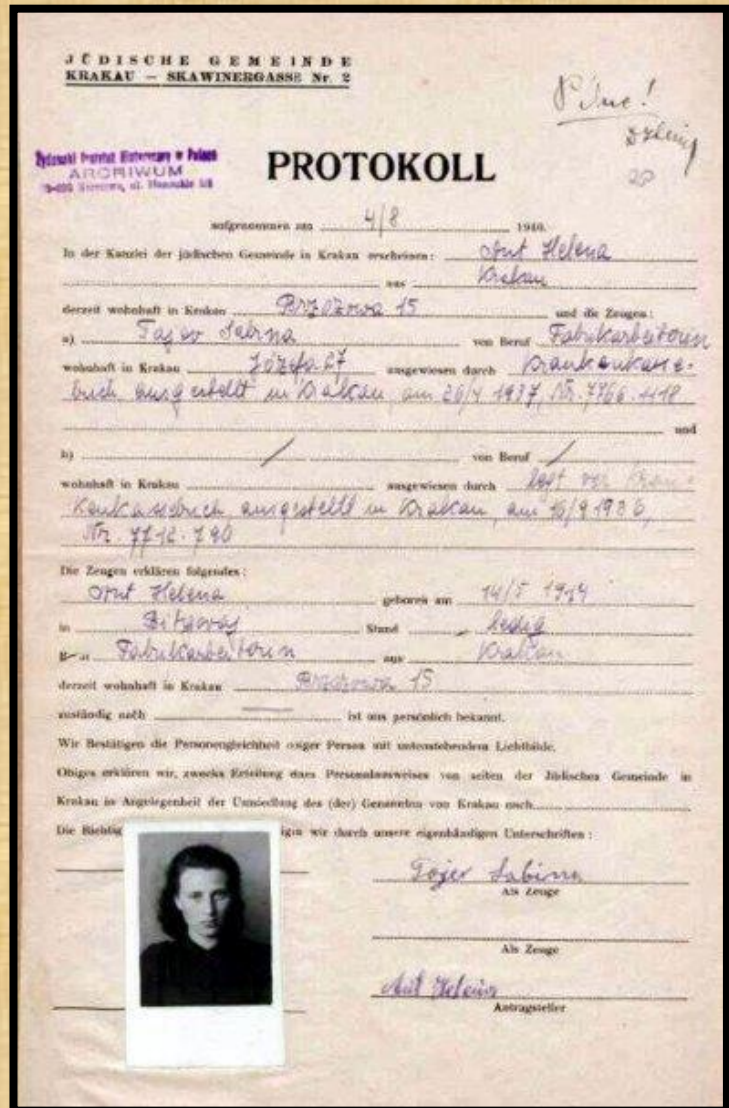 JÜDISCHE GEMEINDE
KRAKAU — SKAWINERGASSE Nr. 2
Pilne!
Żydowski Instytut Historyczny w Polsce
ARCHIWUM
PROTOKOLL
aufgenommen am 4/8 1940.
In der Kanzlei der jüdischen Gemeinde in Krakau erscheinen: Helena
aus Krakau
derzeit wohnhaft in Krakau Brzozowa 15 und die Zeugen:
a) Tajer Sabina von Beruf Fabrikarbeiterin
wohnhaft in Krakau Józefa 27 ausgewiesen durch Krankenkasse-
buch ausgestellt in Krakau, am 1937, Nr.
und
b) von Beruf
wohnhaft in Krakau ausgewiesen durch
ausgestellt in Krakau, am
Nr. 7712-790
Die Zeugen erklären folgendes:
Helena geboren am 14/5
in Stand ledig
Fabrikarbeiterin aus Krakau
derzeit wohnhaft in Krakau Brzozowa 15
zuständig nach ist uns persönlich bekannt.
Wir Bestätigen die Personengleichheit obiger Person mit untenstehendem Lichtbilde.
Obiges erklären wir, zwecks Erteilung eines Personalausweises von seiten der Jüdischen Gemeinde in
Krakau in Angelegenheit der Umsiedlung des (der) Genannten von Krakau nach
Die Richtig igen wir durch unsere eigenhändigen Unterschriften:
Tojer Sabina
Als Zeuge
Als Zeuge
Helena
Antragsteller